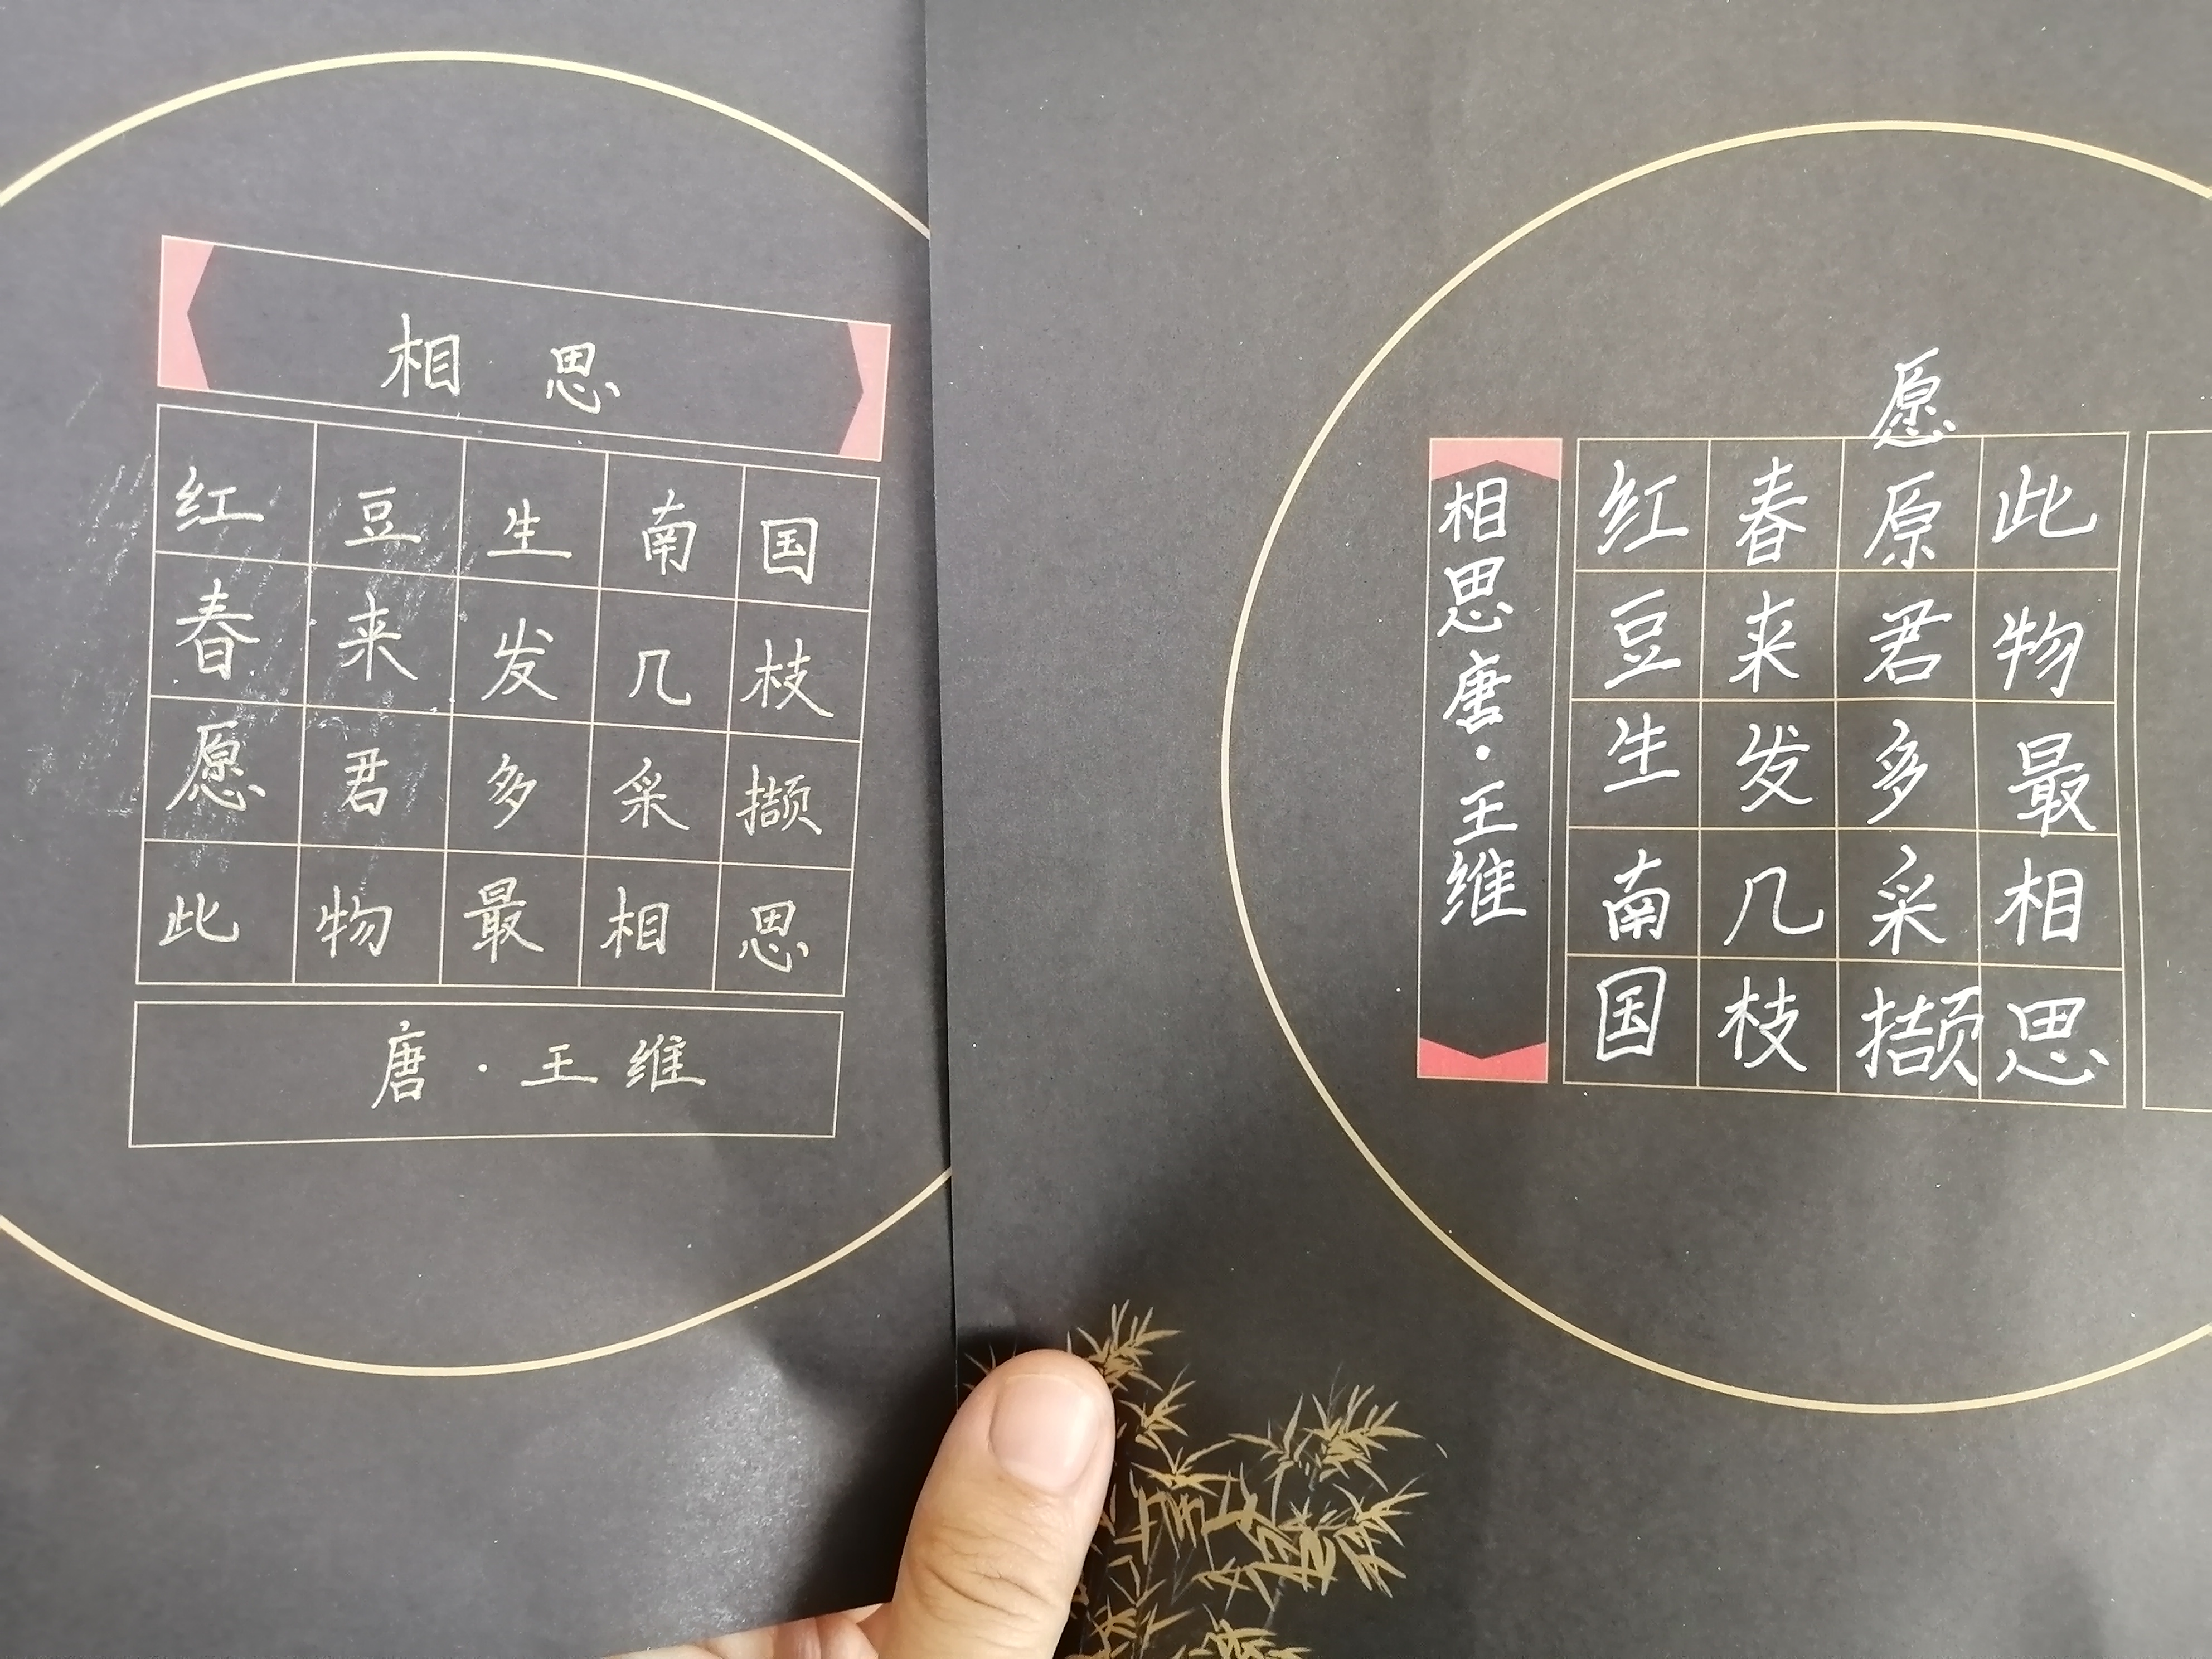 相思
红豆生南国
春来发几枝
愿君多采撷
此物最相思
唐·王维
相思唐·王维
红豆生南国
春来发几枝
愿
原君多采撷
此物最相思